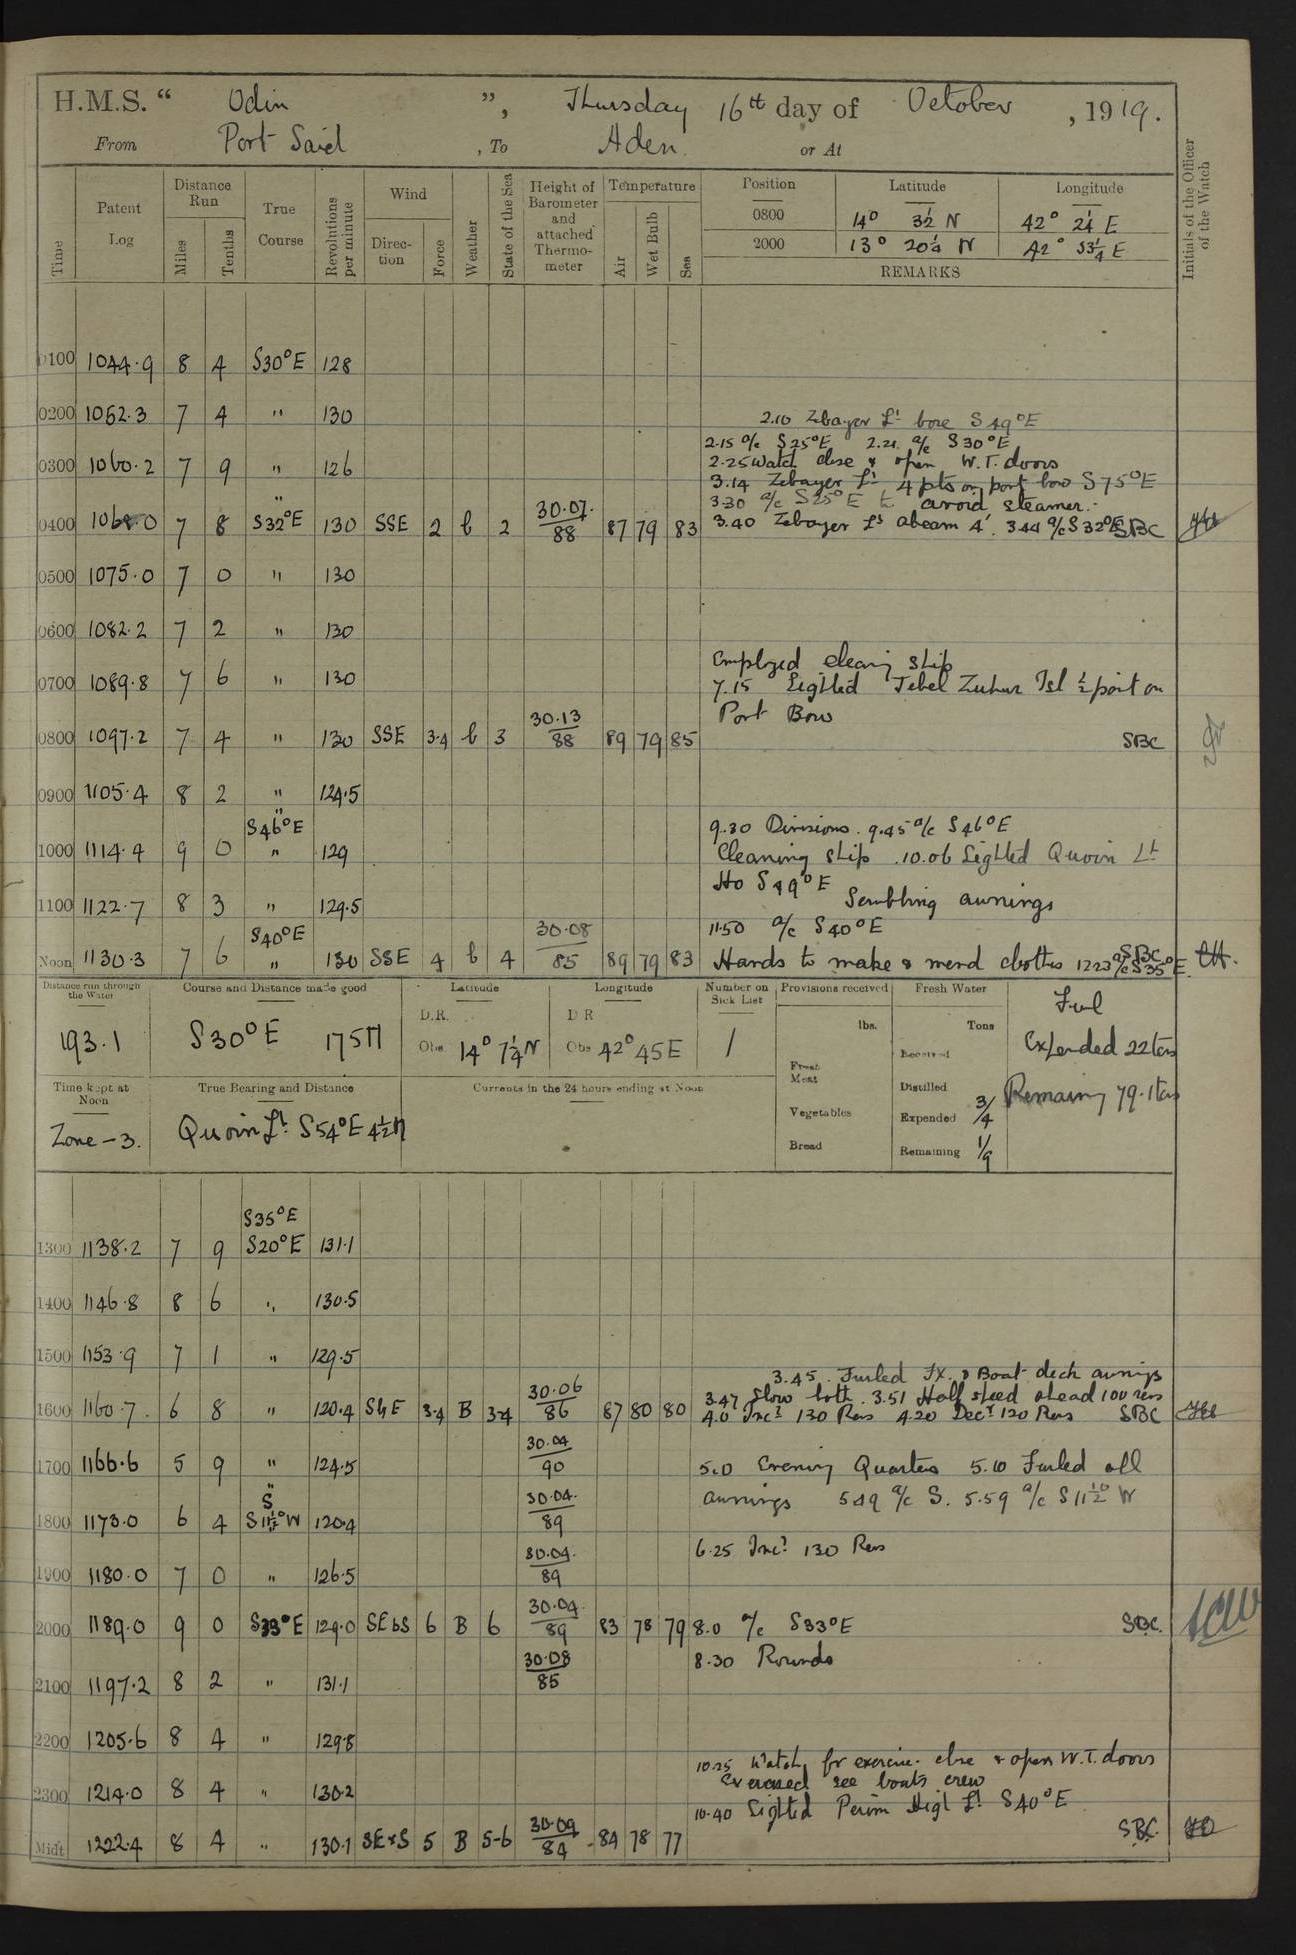 H.M.S. “ Odin ”, Thursday 16th day of October, 1919.
From Port Said, To Aden or At
Time
Patent Log
Distance Run
Miles
Tenths
True Course
Revolutions per minute
Wind
Direction
Force
Weather
State of the Sea
Height of Barometer and attached Thermometer
Temperature
Air
Wet Bulb
Sea
Position Latitude Longitude
0800 14° 3½ N 42° 24 E
2000 13° 20¼ N 42° 53¼ E
REMARKS
Initials of the Officer of the Watch
0100 1044.9 8 4 S30°E 128
2.10 Zebayer Lt bore S49°E
0200 1052.3 7 4 " 130
2.15 a/c S25°E 2.21 a/c S30°E
0300 1060.2 7 9 " 126 2.25 Watch close & open W.T. doors
3.14 Zebayer Lt 4 pts on port bow S75°E
" 3.30 a/c S25°E to avoid steamer.
0400 1068.0 7 8 S32°E 130 SSE 2 b 2 30.07/88 87 79 83 3.40 Zebayer Lt abeam 4'. 344 a/c S32°E SBC
0500 1075.0 7 0 " 130
0600 1082.2 7 2 " 130
Employed cleaning ship
0700 1089.8 7 6 " 130 7.15 Sighted Jebel Zukur Isl ½ point on
Port Bow
0800 1097.2 7 4 " 130 SSE 3.4 b 3 30.13/88 89 79 85 SBC
0900 1105.4 8 2 " 124.5
"
S46°E 9.30 Divisions. 9.45 a/c S46°E
1000 1114.4 9 0 " 129 Cleaning ship .10.06 Sighted Quoin Lt
Ho S49°E
1100 1122.7 8 3 " 129.5 Scrubbing awnings
S40°E 11.50 a/c S40°E
Noon 1130.3 7 6 " 130 SSE 4 b 4 30.08/85 89 79 83 Hands to make & mend clothes 1223 a/c S35°E SBC
Distance run through the Water
193.1
Course and Distance made good
S30°E 175M
Latitude
D.R.
Obs. 14° 7¼ N
Longitude
D R
Obs 42° 45 E
Number on Sick List
1
Provisions received
lbs.
Fresh Meat
Vegetables
Bread
Fresh Water
Tons
Received
Distilled
Expended 3/4
Remaining 1/9
Fuel
Expended 22 tons
Remaining 79.1 tons
Time kept at Noon
Zone -3.
True Bearing and Distance
Quoin Lt. S54°E 4½M
Currents in the 24 hours ending at Noon
S35°E
1300 1138.2 7 9 S20°E 131.1
1400 1146.8 8 6 " 130.5
1500 1153.9 7 1 " 129.5
3.45. Furled Fx. & Boat deck awnings
3.47 Slow both. 3.51 Half speed ahead 100 revs
1600 1160.7 6 8 " 120.4 SbE 3.4 B 3.4 30.06/86 87 80 80 4.0 Incd 130 Revs 4.20 Decd 120 Revs SBC
1700 1166.6 5 9 " 124.5 30.04/90 5.0 Evening Quarters 5.10 Furled all
"
S awnings 549 a/c S. 5.59 a/c S11½° W
1800 1173.0 6 4 S11½°W 120.4 30.04/89
6.25 Incd 130 Revs
1900 1180.0 7 0 " 126.5 30.04/89
2000 1189.0 9 0 S33°E 129.0 SEbS 6 B 6 30.04/89 83 78 79 8.0 a/c S33°E SBC.
8.30 Rounds
2100 1197.2 8 2 " 131.1 30.08/85
2200 1205.6 8 4 " 129.8
10.25 Watch for exercise. close & open W.T. doors
Exercised sea boats crew
2300 1214.0 8 4 " 130.2
10.40 Sighted Perim High Lt. S40°E
Midt 1222.4 8 4 " 130.1 SExS 5 B 5-6 30.09/84 84 78 77 SBC.